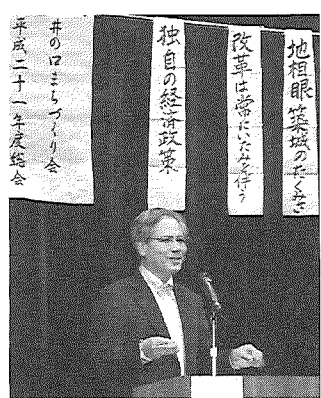 地相眼 築城のたくみさ
改革は常にいたみを伴う
独自の経済政策
井の口まちづくり会
平成二十一年度総会